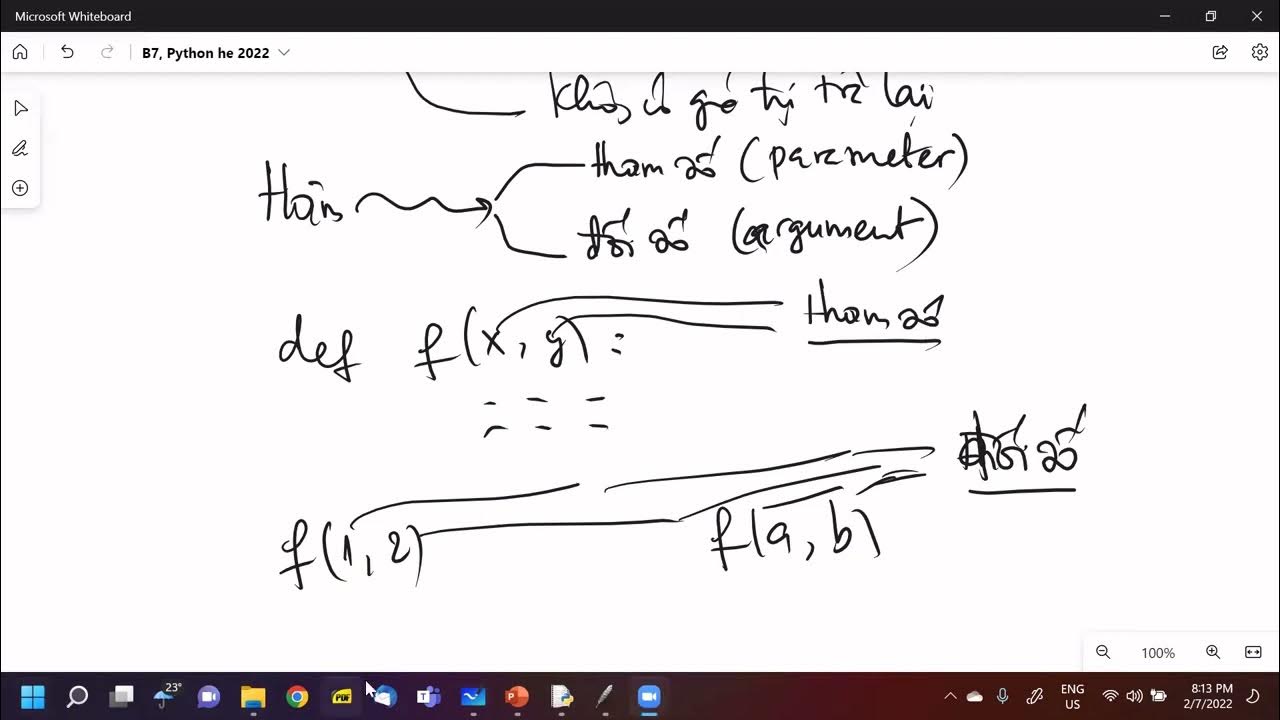 Microsoft Whiteboard
B7, Python he 2022
không có giá trị trả lại
Hàm
tham số (parameter)
đối số (argument)
def f(x, y):
tham số
đối số
f(1, 2)
f(a, b)
100%
23°
PDF
ENG
US
8:13 PM
2/7/2022